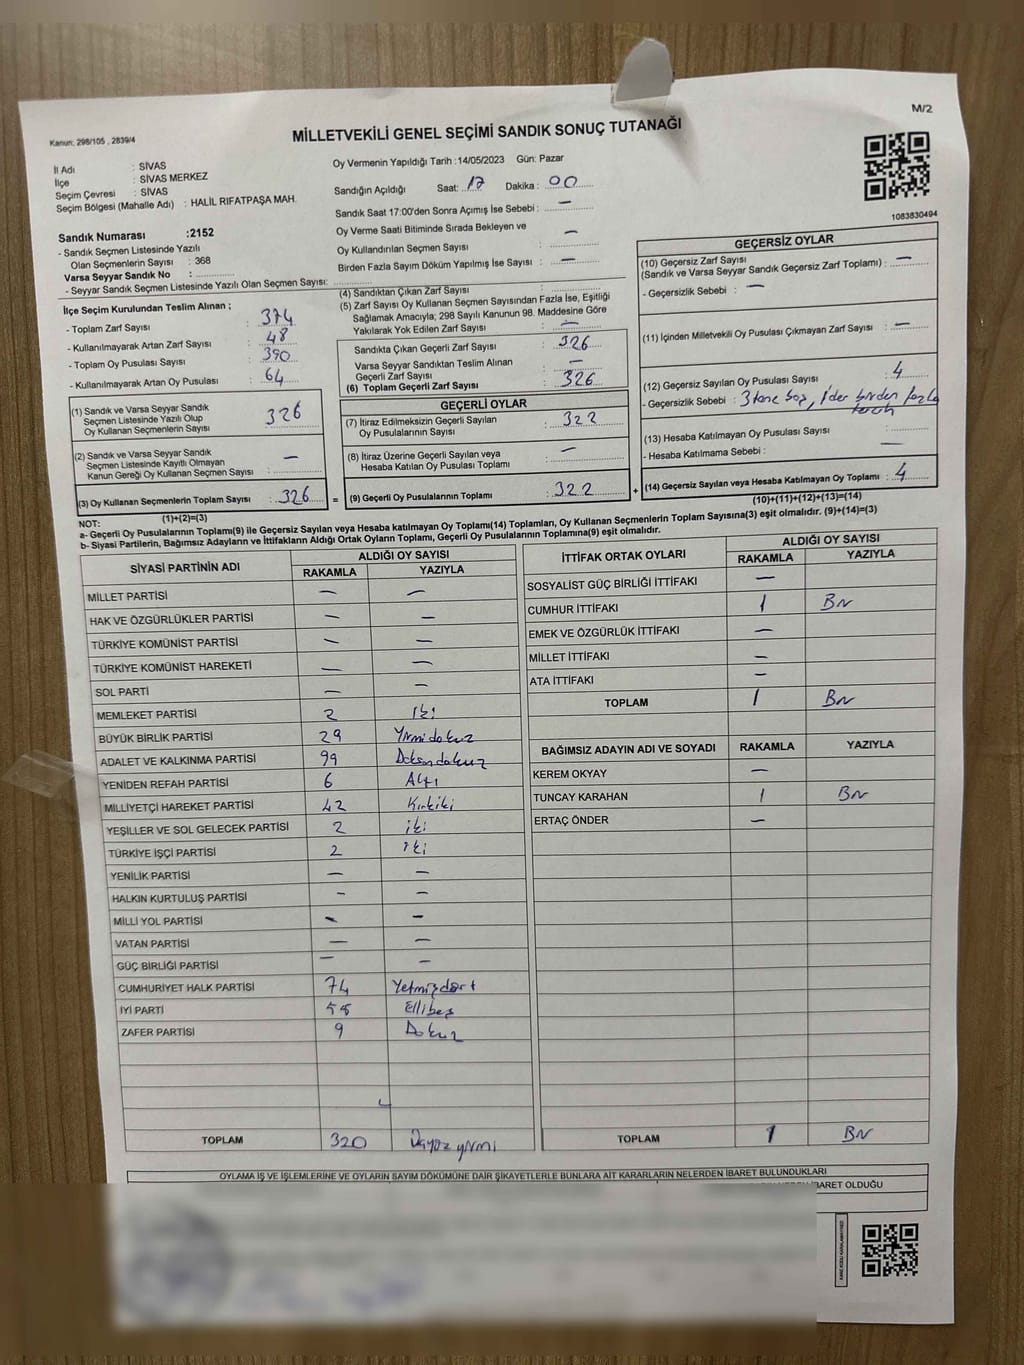 M/2
Kanun: 298/105 , 2839/4
MİLLETVEKİLİ GENEL SEÇİMİ SANDIK SONUÇ TUTANAĞI
İl Adı : SİVAS
İlçe : SİVAS MERKEZ
Seçim Çevresi : SİVAS
Seçim Bölgesi (Mahalle Adı) : HALİL RIFATPAŞA MAH.
Sandık Numarası :2152
- Sandık Seçmen Listesinde Yazılı
Olan Seçmenlerin Sayısı : 368
Varsa Seyyar Sandık No :
- Seyyar Sandık Seçmen Listesinde Yazılı Olan Seçmen Sayısı:
Oy Vermenin Yapıldığı Tarih :14/05/2023 Gün: Pazar
Sandığın Açıldığı Saat: 17 Dakika : 00
Sandık Saat 17:00'den Sonra Açımış İse Sebebi : —
Oy Verme Saati Bitiminde Sırada Bekleyen ve
Oy Kullandırılan Seçmen Sayısı : —
Birden Fazla Sayım Döküm Yapılmış İse Sayısı : —
1083830494
İlçe Seçim Kurulundan Teslim Alınan ;
- Toplam Zarf Sayısı : 374
- Kullanılmayarak Artan Zarf Sayısı : 48
- Toplam Oy Pusulası Sayısı : 390
- Kullanılmayarak Artan Oy Pusulası : 64
(1) Sandık ve Varsa Seyyar Sandık
Seçmen Listesinde Yazılı Olup
Oy Kullanan Seçmenlerin Sayısı : 326
(2) Sandık ve Varsa Seyyar Sandık
Seçmen Listesinde Kayıtlı Olmayan
Kanun Gereği Oy Kullanan Seçmen Sayısı : —
(3) Oy Kullanan Seçmenlerin Toplam Sayısı : 326 =
(1)+(2)=(3)
(4) Sandıktan Çıkan Zarf Sayısı :
(5) Zarf Sayısı Oy Kullanan Seçmen Sayısından Fazla İse, Eşitliği
Sağlamak Amacıyla; 298 Sayılı Kanunun 98. Maddesine Göre
Yakılarak Yok Edilen Zarf Sayısı : —
Sandıkta Çıkan Geçerli Zarf Sayısı : 326
Varsa Seyyar Sandıktan Teslim Alınan
Geçerli Zarf Sayısı : —
(6) Toplam Geçerli Zarf Sayısı : 326
GEÇERLİ OYLAR
(7) İtiraz Edilmeksizin Geçerli Sayılan
Oy Pusulalarının Sayısı : 322
(8) İtiraz Üzerine Geçerli Sayılan veya
Hesaba Katılan Oy Pusulası Toplamı : —
(9) Geçerli Oy Pusulalarının Toplamı : 322 +
GEÇERSİZ OYLAR
(10) Geçersiz Zarf Sayısı
(Sandık ve Varsa Seyyar Sandık Geçersiz Zarf Toplamı) : —
- Geçersizlik Sebebi : —
(11) İçinden Milletvekili Oy Pusulası Çıkmayan Zarf Sayısı : —
(12) Geçersiz Sayılan Oy Pusulası Sayısı : 4
- Geçersizlik Sebebi : 3 tane boş, 1'der birden fazla
tercih
(13) Hesaba Katılmayan Oy Pusulası Sayısı :
- Hesaba Katılmama Sebebi : —
(14) Geçersiz Sayılan veya Hesaba Katılmayan Oy Toplamı : 4
(10)+(11)+(12)+(13)=(14)
NOT:
a- Geçerli Oy Pusulalarının Toplamı(9) ile Geçersiz Sayılan veya Hesaba katılmayan Oy Toplamı(14) Toplamları, Oy Kullanan Seçmenlerin Toplam Sayısına(3) eşit olmalıdır. (9)+(14)=(3)
b- Siyasi Partilerin, Bağımsız Adayların ve İttifakların Aldığı Ortak Oyların Toplamı, Geçerli Oy Pusulalarının Toplamına(9) eşit olmalıdır.
SİYASİ PARTİNİN ADI ALDIĞI OY SAYISI
RAKAMLA YAZIYLA
MİLLET PARTİSİ — —
HAK VE ÖZGÜRLÜKLER PARTİSİ — —
TÜRKİYE KOMÜNİST PARTİSİ — —
TÜRKİYE KOMÜNİST HAREKETİ — —
SOL PARTİ — —
MEMLEKET PARTİSİ 2 iki
BÜYÜK BİRLİK PARTİSİ 29 Yirmidokuz
ADALET VE KALKINMA PARTİSİ 99 Doksandokuz
YENİDEN REFAH PARTİSİ 6 Altı
MİLLİYETÇİ HAREKET PARTİSİ 42 Kırkiki
YEŞİLLER VE SOL GELECEK PARTİSİ 2 iki
TÜRKİYE İŞÇİ PARTİSİ 2 iki
YENİLİK PARTİSİ — —
HALKIN KURTULUŞ PARTİSİ — —
MİLLİ YOL PARTİSİ — —
VATAN PARTİSİ — —
GÜÇ BİRLİĞİ PARTİSİ — —
CUMHURİYET HALK PARTİSİ 74 Yetmişdört
İYİ PARTİ 55 Ellibeş
ZAFER PARTİSİ 9 Dokuz
TOPLAM 320 Üçyüz yirmi
İTTİFAK ORTAK OYLARI ALDIĞI OY SAYISI
RAKAMLA YAZIYLA
SOSYALİST GÜÇ BİRLİĞİ İTTİFAKI —
CUMHUR İTTİFAKI 1 Bir
EMEK VE ÖZGÜRLÜK İTTİFAKI —
MİLLET İTTİFAKI —
ATA İTTİFAKI —
TOPLAM 1 Bir
BAĞIMSIZ ADAYIN ADI VE SOYADI RAKAMLA YAZIYLA
KEREM OKYAY —
TUNCAY KARAHAN 1 Bir
ERTAÇ ÖNDER —
TOPLAM 1 Bir
OYLAMA İŞ VE İŞLEMLERİNE VE OYLARIN SAYIM DÖKÜMÜNE DAİR ŞİKAYETLERLE BUNLARA AİT KARARLARIN NELERDEN İBARET BULUNDUKLARI
İBARET OLDUĞU